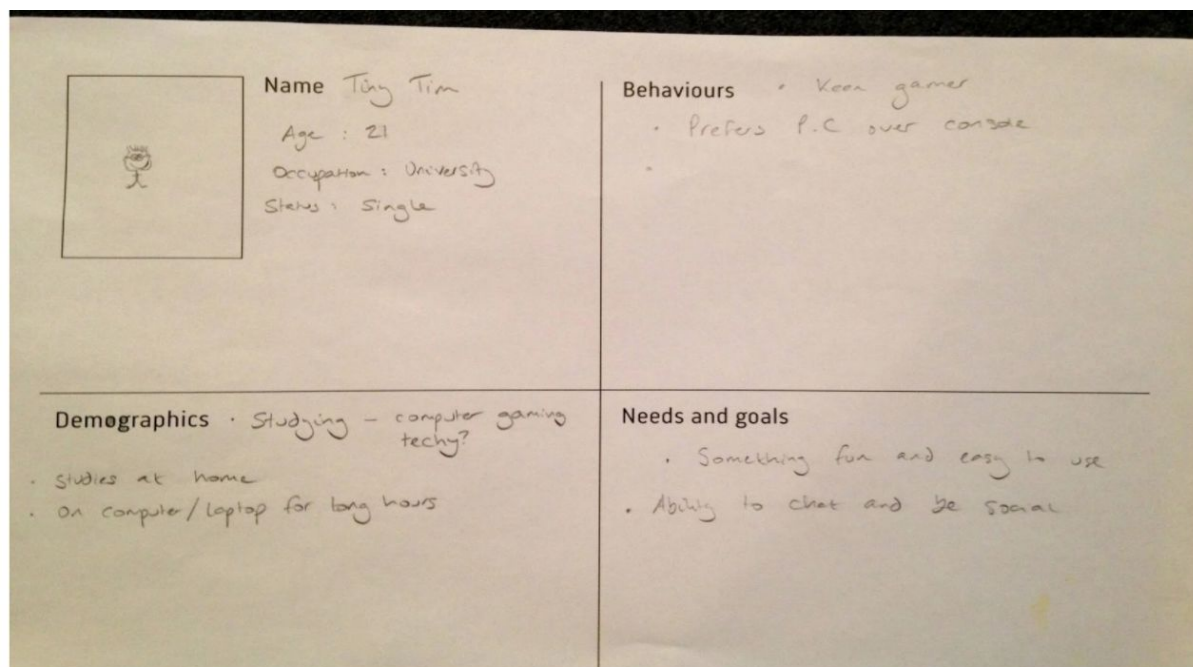 Name Tiny Tim
Age : 21
Occupation : University
Status : Single
Behaviours · Keen gamer
· Prefers P.C over console
·
Demographics · Studying – computer gaming
techy?
· studies at home
· On computer/laptop for long hours
Needs and goals
· Something fun and easy to use
· Ability to chat and be social